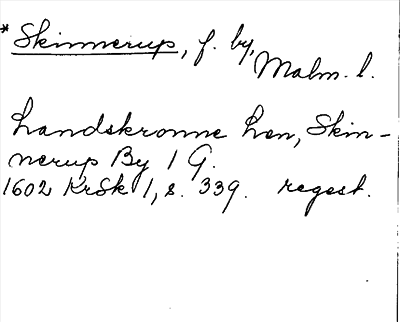 * Skinnerup, f. by,
Malm. l.
Landskronne Len, Skin-
nerup By 1 G.
1602 KrSk 1, s. 339. regest.